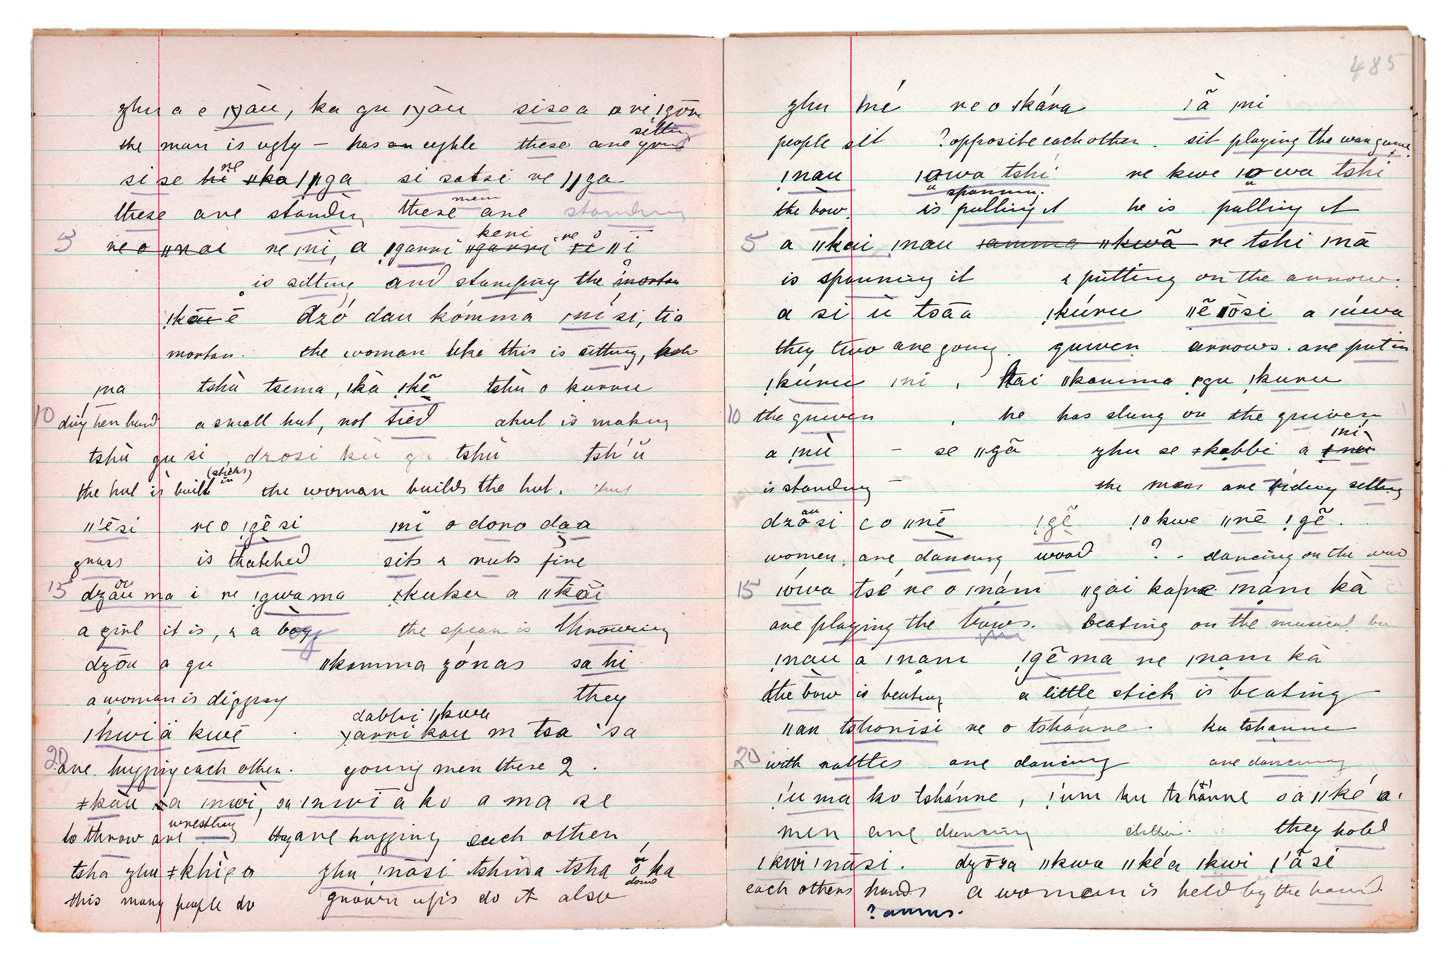 zhu a e ŋàu, ka gu ŋàu sise a o re ǃgōu
the man is ugly — has an eyhle these are good sitting
si se ǁga si satsi re ǁga
these are standin these men are standing
5 re o re ǀnì, a ǃgarri keri
is sitting and stamping the morton
dzó dau kómma ǀní si, tia
mortar. the woman like this is sitting,
ma tshù tsema, ǀkà ǀkẽ tshù o kurru
10 her hand a small hut, not tied a hut is making
tshù gu si dzosi kù gu tshù tsh'ŭ
the hut is built (sticks) the woman builds the hut. hut
ǁ'ēsi re o ǃgẽsi ǀnĩ o doro daa
grass is thatched sits & rubs fire
15 dzāu ma i re ǃgwama ǂkuker a ǁkāi
a girl it is, & a boy the spear is throwing
dzōu a gu ǁkomma zónas sa hi
a woman is digging they
ǀhwi a kwē dabbi ǁkwa m tsa 'sa
20 are hugging each other. young men these 2.
ǂkāu a ǀnwì, sa ǀnwī a ko a ma se
to throw are wrestling they are hugging each other
tsha zhu ǂkhìeo zhu ǃnāsi tshira tsha ka
this many people do grown ups do it also done
485
zhu ǀné re o ǂkára ǀã ǀni
people sit ? opposite each other. sit playing the war game.
ǃnau ǀowa tshi re kwe ǀowa tshi
the bow. is pulling it spanning. he is pulling it
5 a ǁkai ǃnau re tshi ǀnā
is spanning it & putting on the arrow.
a si ù tsāa ǃkúru ǁē ǀōsi a ǀúwa
they two are going quiver arrows. are put in
ǃkúru ǀni, kai ǁkamma ǀgu ǃkuru
10 the quiver, he has slung on the quiver
a ǀnù – se ǁgā zhu se ǂkabbi a ǀni
is standing – the men are riding sitting
dzāusi c o ǁnē ǃgẽ ǃo kwe ǁnē ǃgẽ.
women, are dancing wood ? - dancing on the wood
15 ǀówa tsé re o ǀnám ǁgai ka re ǀnám kà
are playing the bows. beating on the musical bow
ǃnau a ǀnam ǃgēma re ǀnam kà
the bow is beating a little stick is beating
ǁan tshonisi re o tshánne ku tshanne
20 with rattles are dancing are dancing
ǃ'u ma ko tshánne, ǃ'um ku tshánne sa ǁké a.
men are dancing they hold
ǀkwi ǀnāsi. dzōza ǁkwa ǁkéa ǀkwi ǀ'āsi
each others hands a woman is held by the hand
? arms.